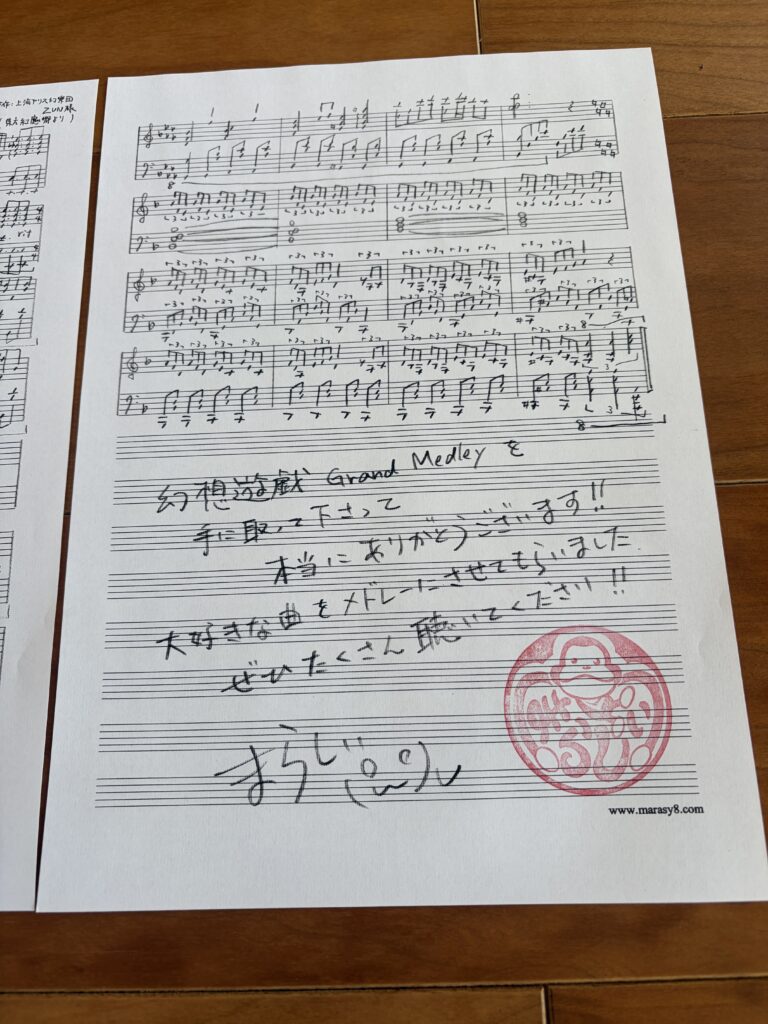 上海アリス幻樂団
ZUN様
rit
8
8
8
幻想遊戯 Grand Medley を
手に取って下さって
本当にありがとうございます!!
大好きな曲をメドレーにさせてもらいました
ぜひたくさん聴いてください!!
まらしぃ
www.marasy8.com